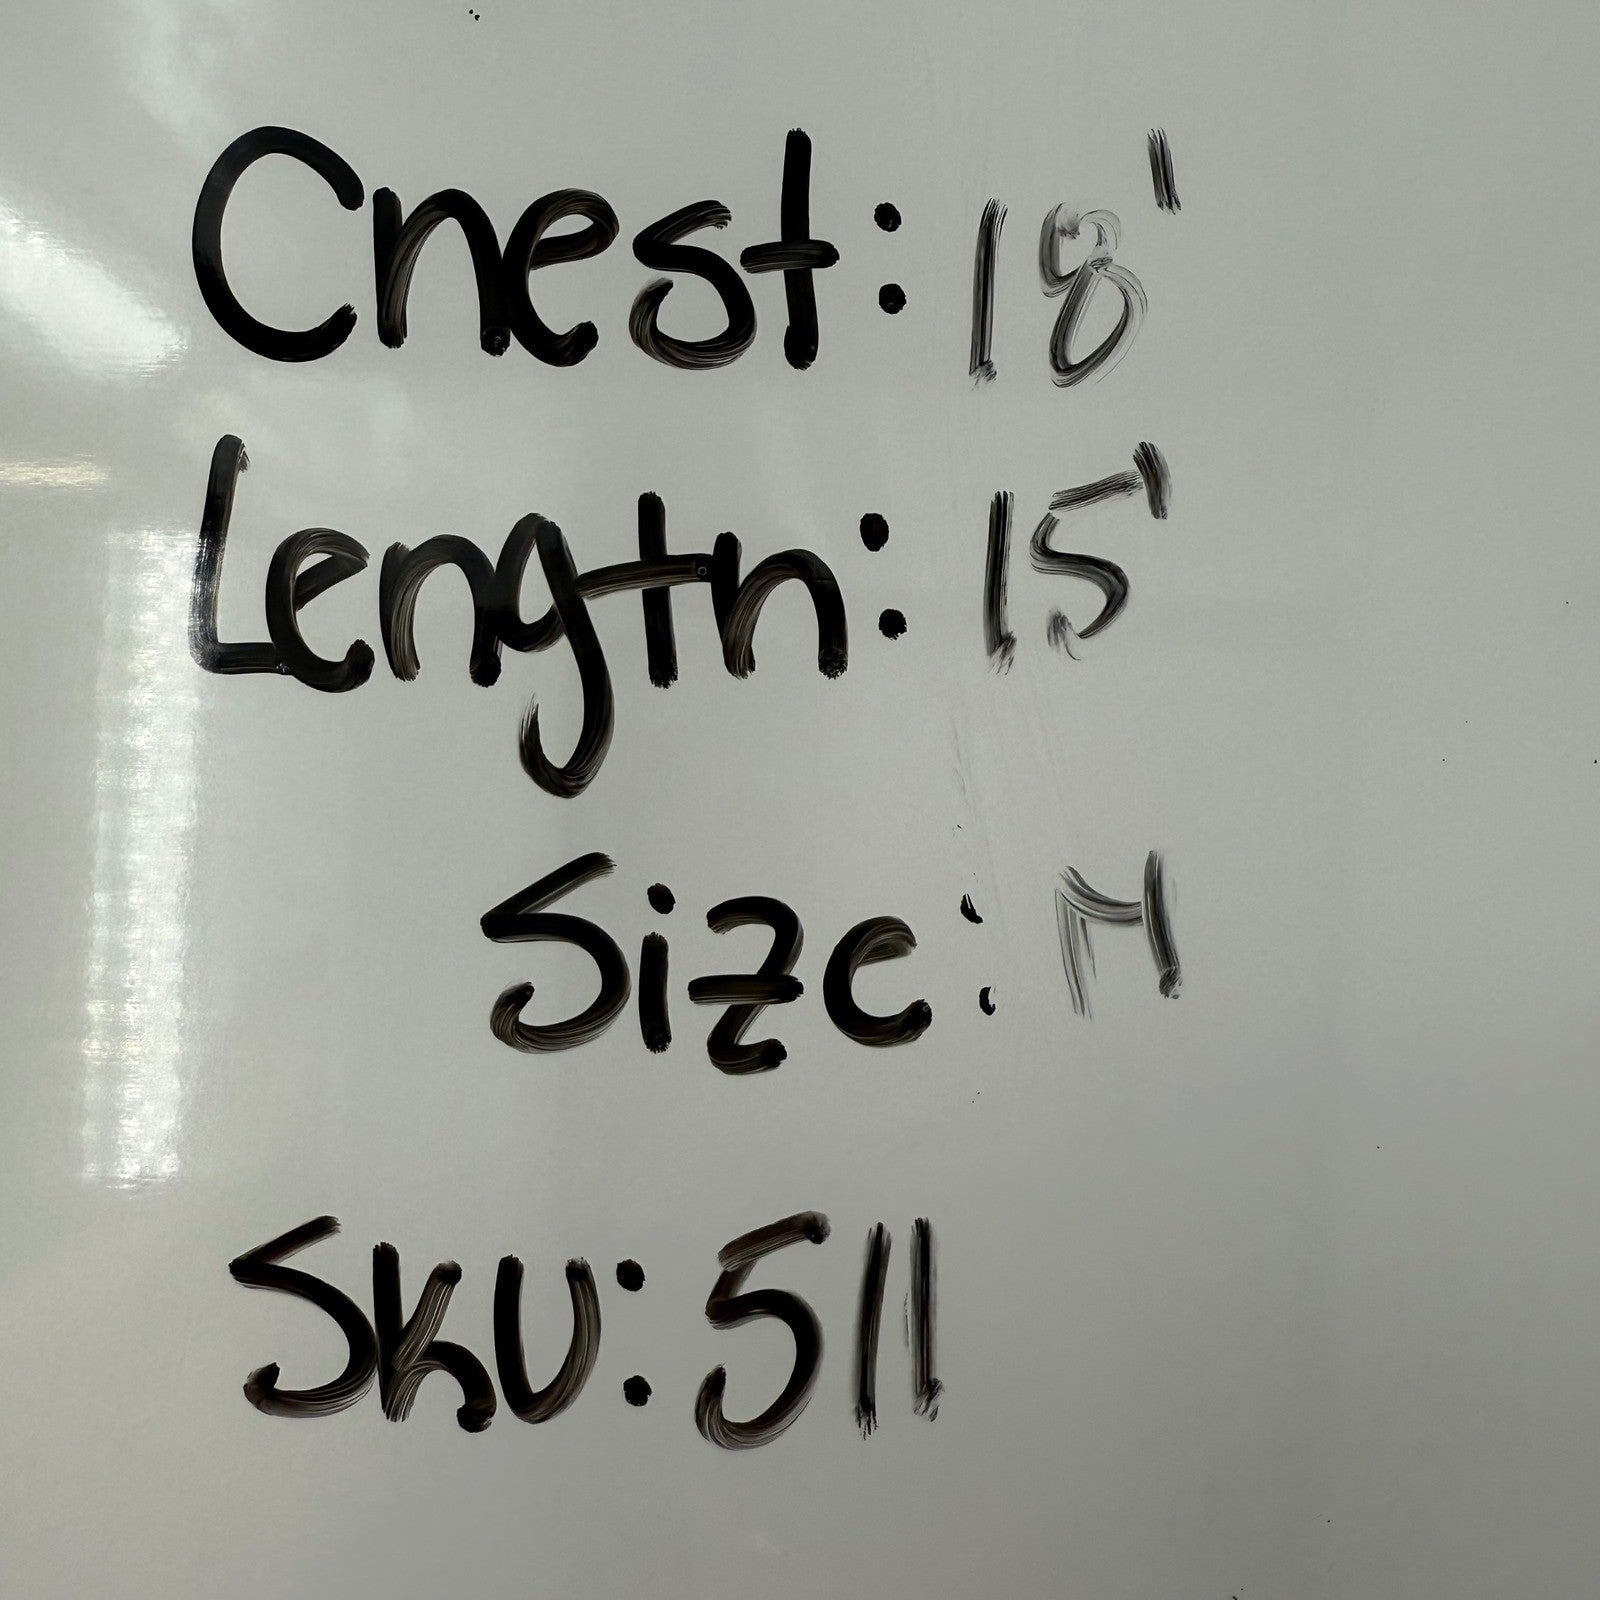 Chest: 18"
Length: 15"
Size: M
SKU: 511